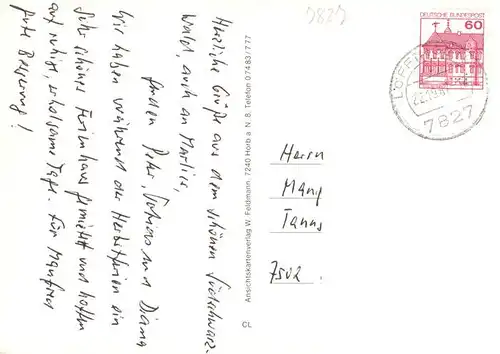 7827
DEUTSCHE BUNDESPOST
60
LÖFFIN
22.10.8
7827
Herzliche Grüße aus dem schönen Südschwarz-
wald, auch an Marlies,
senden Peter, und Diana
Wir haben während der Herbstferien ein
sehr schönes Ferienhaus gemietet und hoffen
auf ruhige, erholsame Tage. Für Manfred
gute Besserung!
Ansichtskartenverlag W. Feldmann, 7240 Horb a. N. 8, Telefon 07483/777
CL
Herrn